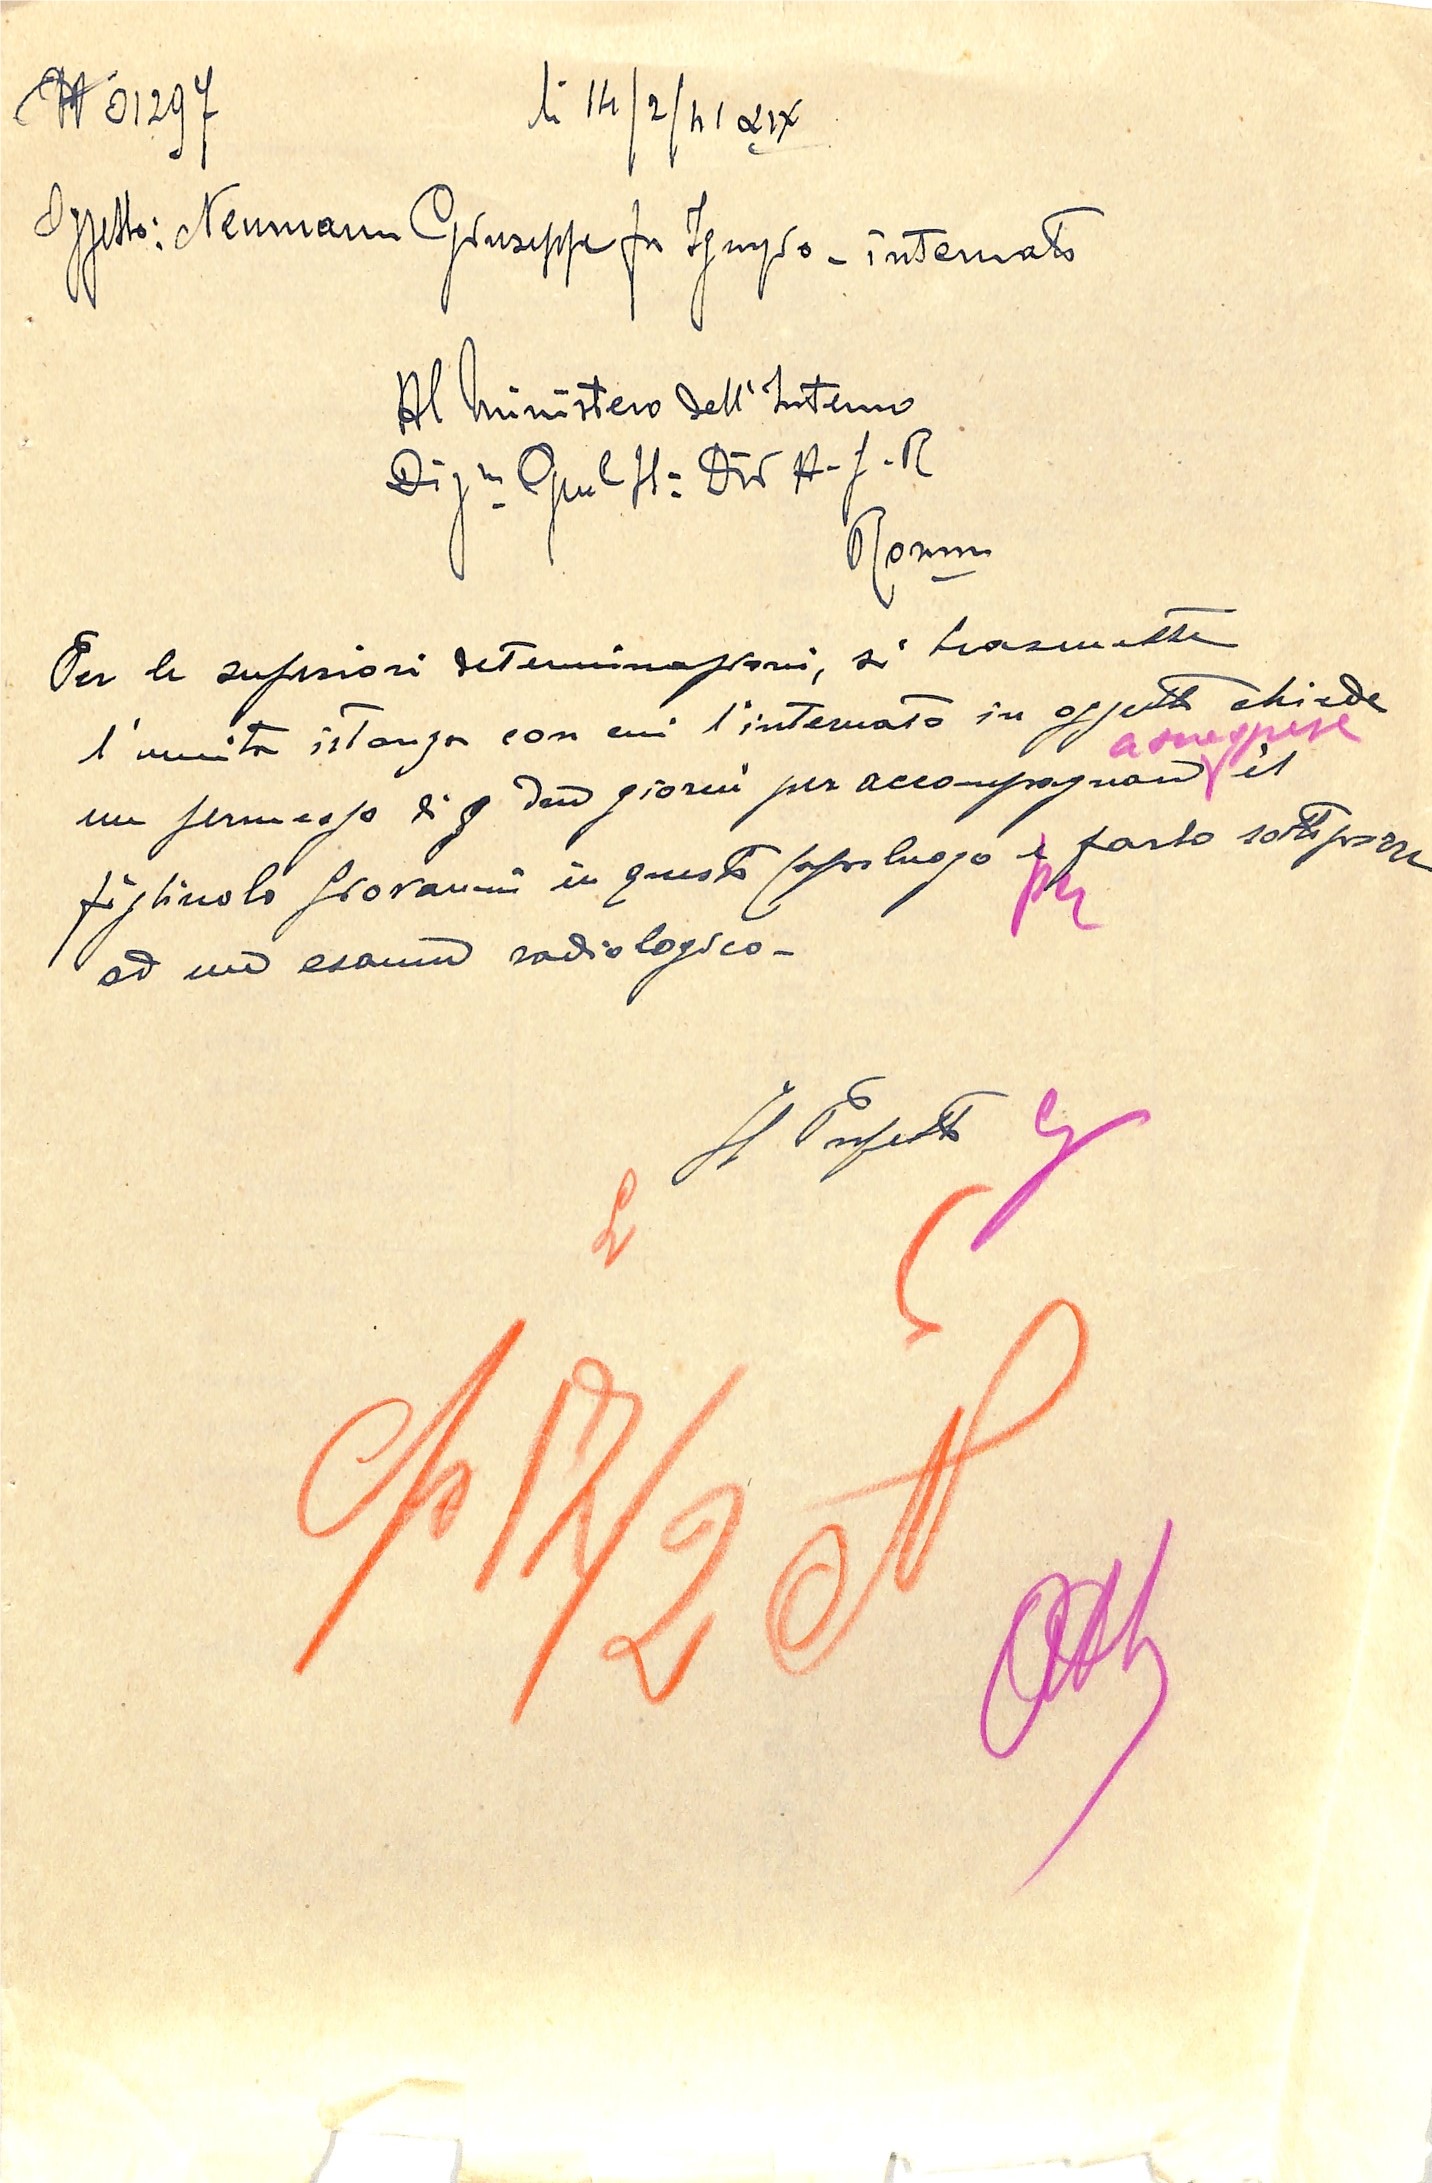 N 01297
li 14/2/41 XIX
Oggetto: Neumann Giuseppe fu Ignazio - internato
Al Ministero dell'Interno
Roma
Per le superiori determinazioni, si trasmette
l'unita istanza con cui l'internato in oggetto chiede
a sue spese
un permesso di due giorni per accompagnare il
figliuolo Giovanni in questo Capoluogo per farlo sottoporre
ad un esame radiologico -
Il Prefetto
17/2